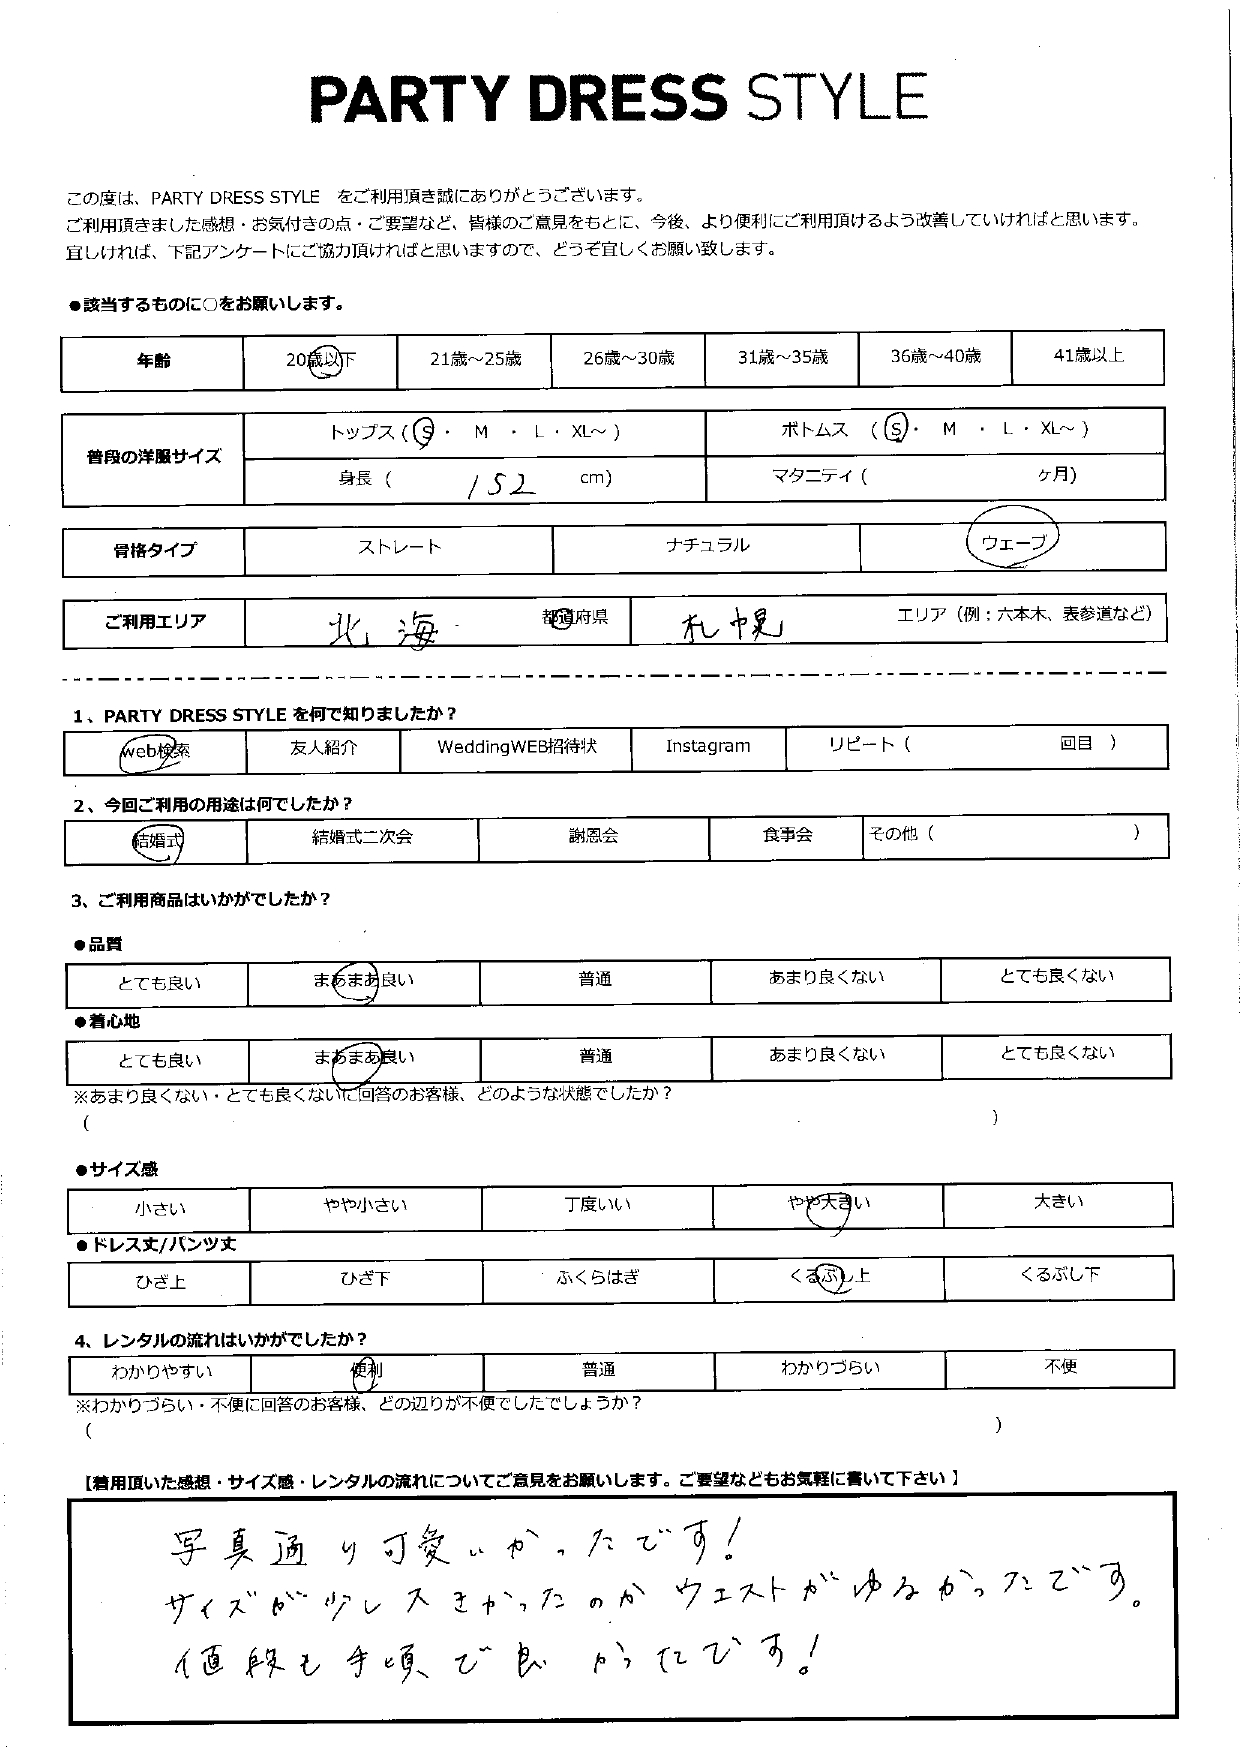 PARTY DRESS STYLE
この度は、PARTY DRESS STYLE　をご利用頂き誠にありがとうございます。
ご利用頂きました感想・お気付きの点・ご要望など、皆様のご意見をもとに、今後、より便利にご利用頂けるよう改善していければと思います。
宜しければ、下記アンケートにご協力頂ければと思いますので、どうぞ宜しくお願い致します。
●該当するものに○をお願いします。
年齢 20歳以下 21歳～25歳 26歳～30歳 31歳～35歳 36歳～40歳 41歳以上
普段の洋服サイズ トップス ( S ・ M ・ L ・ XL～ ) ボトムス ( S ・ M ・ L ・ XL～ )
身長 ( 152 cm) マタニティ ( ヶ月)
骨格タイプ ストレート ナチュラル ウェーブ
ご利用エリア 北海 都道府県 札幌 エリア（例：六本木、表参道など）
1、PARTY DRESS STYLE を何で知りましたか？
web検索 友人紹介 WeddingWEB招待状 Instagram リピート ( 回目 )
2、今回ご利用の用途は何でしたか？
結婚式 結婚式二次会 謝恩会 食事会 その他 ( )
3、ご利用商品はいかがでしたか？
●品質
とても良い まあまあ良い 普通 あまり良くない とても良くない
●着心地
とても良い まあまあ良い 普通 あまり良くない とても良くない
※あまり良くない・とても良くないに回答のお客様、どのような状態でしたか？
( )
●サイズ感
小さい やや小さい 丁度いい やや大きい 大きい
●ドレス丈/パンツ丈
ひざ上 ひざ下 ふくらはぎ くるぶし上 くるぶし下
4、レンタルの流れはいかがでしたか？
わかりやすい 便利 普通 わかりづらい 不便
※わかりづらい・不便に回答のお客様、どの辺りが不便でしたでしょうか？
( )
【着用頂いた感想・サイズ感・レンタルの流れについてご意見をお願いします。ご要望などもお気軽に書いて下さい 】
写真通り可愛いかったです！
サイズが少し大きかったのかウェストがゆるかったです。
値段も手頃で良かったです！